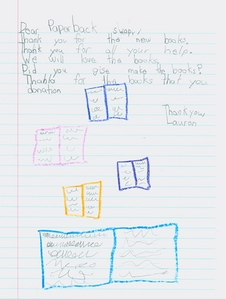 Dear Paper back swaper
thank you for the new books.
thank you for all your help.
We will love the books.
Did you guise make the books?
Thanks for the books that you
donation
Thank you
Lauren